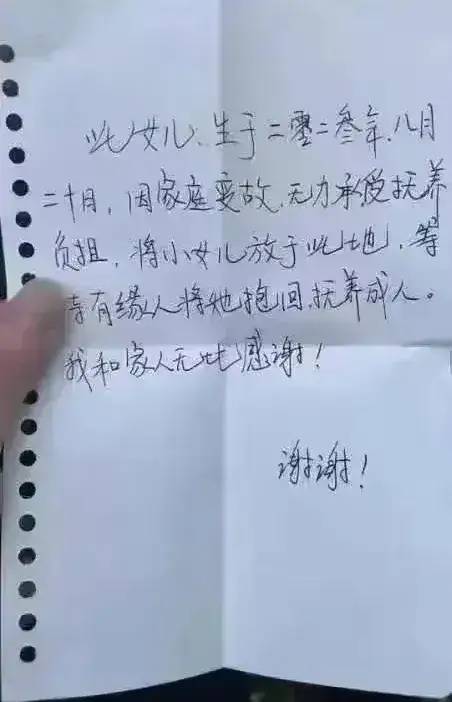 此女儿、生于二零二叁年、八月
二十月，因家庭变故、无力承受抚养
负担，将小女儿放于此地，等
待有缘人将她抱回、抚养成人。
我和家人无比感谢！
谢谢！